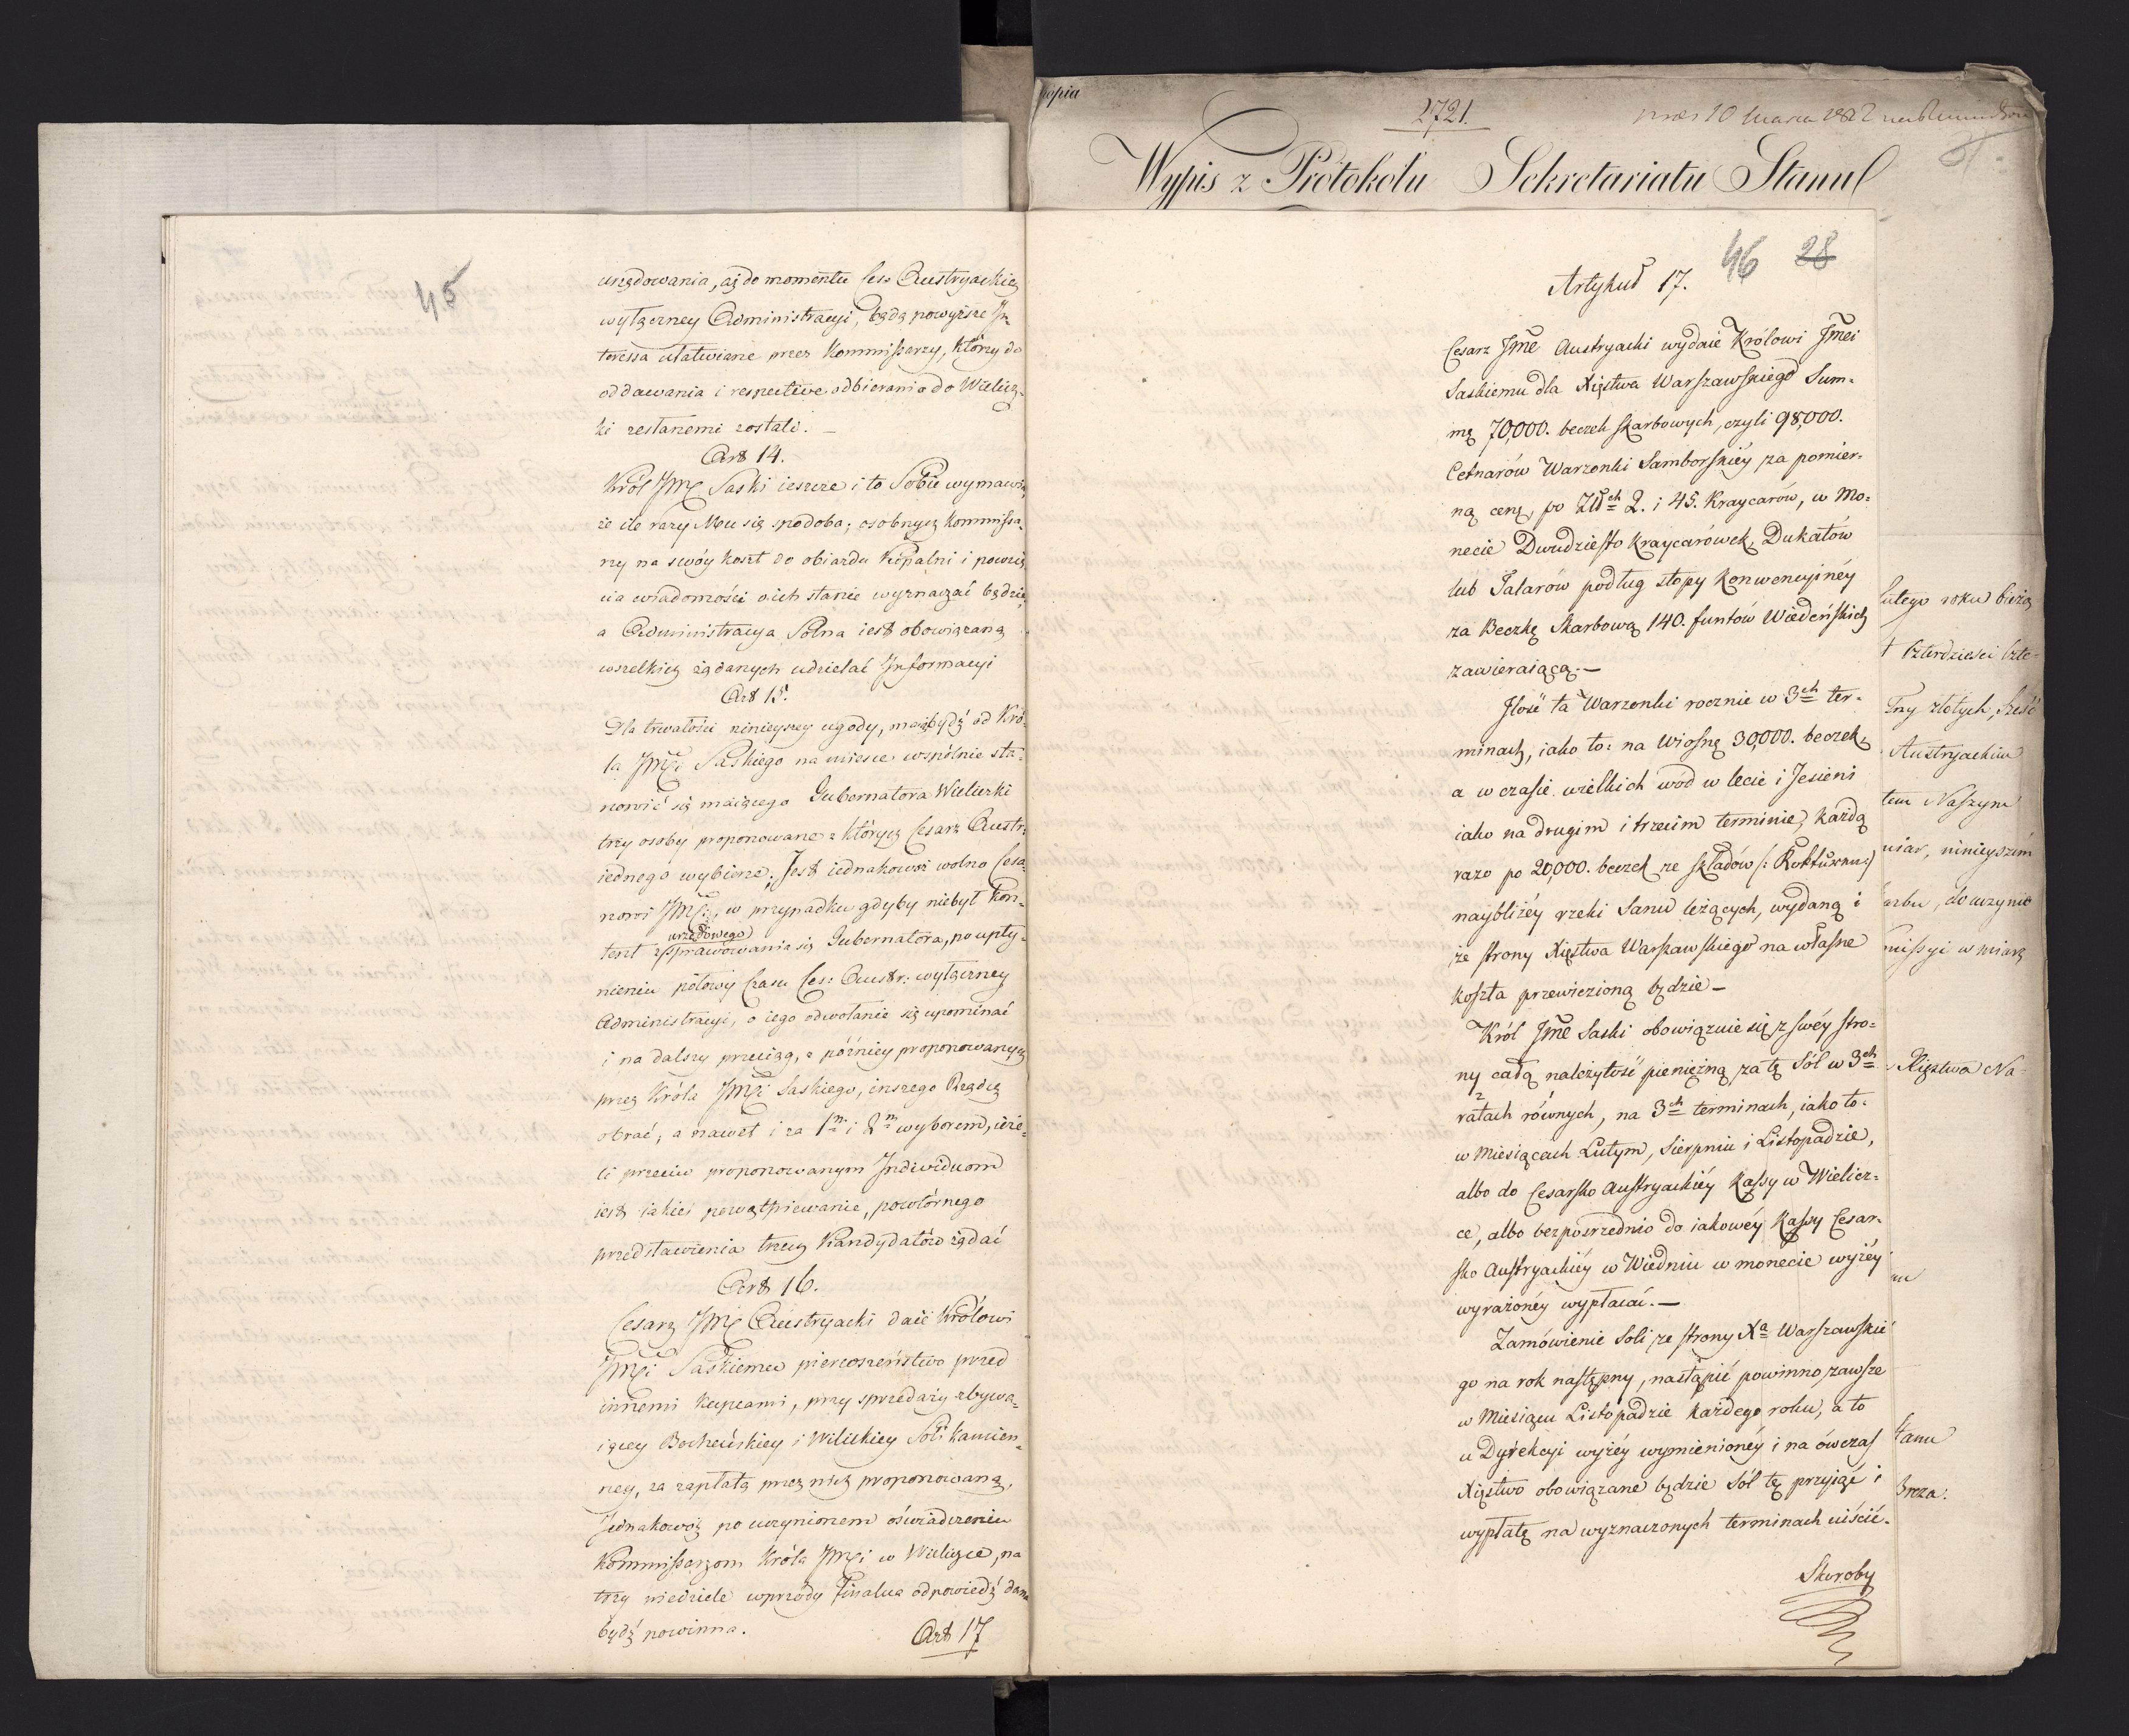 45
urzędowania, aż do momentu Ces: Austryackiey
wyłączney Administracyi, będą powyższe In¬
teressa ułatwiane przez Kommissarzy, którzy do
oddawania i respective odbierania do Wielicz¬
ki zesłanemi zostali. —
Art 14.
Król JMć Saski ieszcze i to Sobie wymawia,
że ile razy Mu się spodoba; osobnych Kommissa¬
rzy na swóy koszt do obiazdu Kopalni i powzię
cia wiadomości o ich stanie wyznaczać będzie,
a Administracya Solna iest obowiązaną
wszelkich żądanych udzielać Informacyi
Art 15.
Dla trwałości ninieyszey ugody, maią bydź od Kró¬
la JMCi Saskiego na miesce wspólnie sta¬
nowić się maiącego Gubernatora Wieliczki
trzy osoby proponowane z których Cesarz Austr:
iednego wybierze. Jest iednakowoż wolno Cesa¬
rzowi JMCi, w przypadku gdyby niebył kon¬
urzędowego
tent z sprawowania się Gubernatora, po upły¬
nieniu połowy Czasu Ces: Austr: wyłączney
Administracyi, o iego odwołanie się upominać
i na dalszy przeciąg, z później proponowanych
przez Króla JMCi Saskiego, inszego Rządcę
obrać, a nawet i za 1m i 2m wyborem, ieże¬
li przeciw proponowanym Individuom
iest iakieś powątpiewanie, powtórnego
przedstawienia trzech Kandydatów żądać
Art 16.
Cesarz JMć Austryacki daie Królowi
JMCi Saskiemu pierwszeństwo przed
innemi kupcami, przy sprzedaży zbywa¬
iącey Bocheńskiey i Wilickiey Soli kamien¬
ney, za zapłatą przez nich proponowaną,
Jednakowoż po uczynionem oświadczeniu
Kommissarzom Króla JMCi w Wieliczce, na
trzy niedziele wprzódy finalna odpowiedź dana
bydź powinna.
Art 17
kopia
2721.
10 Marca 1812
Wypis z Protokołu Sekretariatu Stanu
46 28
Artykuł 17.
Cesarz Jmć Austryacki wydaie Królowi Jmci
Saskiemu dla Xięstwa Warszawskiego Sum¬
mę 70,000. beczek skarbowych, czyli 98,000.
Cetnarów Warzonki Samborskiey za pomier¬
ną cenę, po Złch 2. i 45. Kraycarów, w Mo¬
necie Dwudziesto kraycarówek, Dukatów
lub Talarów podług stopy Konwencyinéy
za Beczkę Skarbową 140. funtów Wiedeńskich
zawieraiącą. —
Ilość ta Warzonki rocznie w 3ch ter¬
minach, iako to: na Wiosnę 30,000. beczek,
a w czasie wielkich wod w lecie i Jesieni
iako na drugim i trzecim terminie, każdą
razo po 20,000. beczek ze składów (: Kokturen:)
naybliżéy rzeki Sanu leżących, wydaną i
ze strony Xięstwa Warszawskiego na własne
koszta przewiezioną będzie —
Król Jmć Saski obowiązuie się z swéy stro¬
ny całą należytość pieniężną za tę Sól w 3ch
ratach równych, na 3ch terminach, iako to:
w Miesiącach Lutym, Sierpniu i Listopadzie,
albo do Cesarsko Austryackiéy Kassy w Wielicz¬
ce, albo bezpośrzednio do iakowéy Kassy Cesar¬
sko Austryackiéy w Wiedniu w monecie wyżéy
wyrażonéy wypłacać. —
Zamówienie Soli ze strony Xa Warszawskie
go na rok następny, nastąpić powinno zawsze
w Miesiącu Listopadzie każdego roku, a to
u Dyrekcyi wyżéy wymienionéy i na ówczas
Xięstwo obowiązane będzie Sól tę przyiąć i
wypłatę na wyznaczonych terminach uiścić.
Skoroby
Lutego roku bieżą
Czterdzieści Czte-
złotych, sześć
Austryackim
tem Naszym
ninieyszém
arbu, do uczynie
missyi w miarę
Xięstwa Na-
Stanu
Breza.